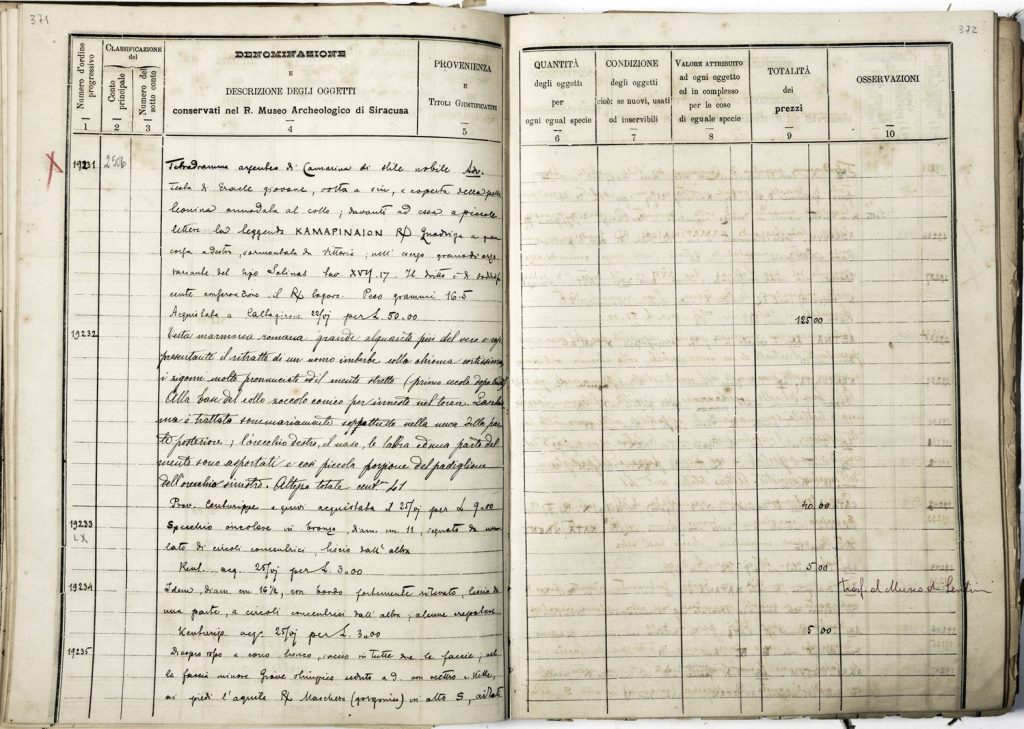 371
Numero d'ordine progressivo
CLASSIFICAZIONE
del
Conto principale
Numero del sotto conto
DENOMINAZIONE
E
DESCRIZIONE DEGLI OGGETTI
conservati nel R. Museo Archeologico di Siracusa
PROVENIENZA
E
TITOLI GIUSTIFICATIVI
1 2 3 4 5
19231 2506 Tetradramma argenteo di Camarina di stile nobile Adv.
Testa di Eracle giovane, volta a sin, e coperta della pelle
leonina annodata al collo; davanti ad essa a piccole
lettere la leggenda KAMAPINAION R/ Quadriga a gran
corsa a destra, sormontata da Vittoria; nell'esergo grano di orzo
variante del tipo Salinas tav. XVII. 17. Il dritto è di soddisfa
cente conservazione, il R/ logoro. Peso grammi 16.5
Acquistata a Caltagirone 22/VI per £. 50.00
19232 Testa marmorea romana grande alquanto più del vero e rap
presentante il ritratto di un uomo imberbe colla chioma cortissima
i zigomi molto pronunciati ed il mento stretto (primo secolo dopo
Alla base del collo zoccolo conico per innesto nel torace.
ma è trattata sommariamente soprattutto nella nuca
te posteriore; l'orecchio destro, il naso, le labbra ed una parte del
mento sono asportati e così piccola porzione del padiglione
dell'orecchio sinistro. Altezza totale cent. 41
Prov. Centuripe e quivi acquistata il 25/VI per £ 9.00
19233 Specchio circolare in bronzo diam. cm. 11, segnato da un
LX lato di circoli concentrici, liscio dall'altro
Kent. acq. 25/VI per £. 3.00
19234 Idem, diam. cm 16½, con bordo fortemente rilevato, liscio da
una parte, a circoli concentrici dall'altra; alcune crepature
Kenturip. acq. 25/VI per £. 3.00
19235 a cono tronco, inciso in tutte due le faccie; nel
la faccia minore Giove olimpico seduto a d. con scettro e Nike,
ai piedi l'aquila R/ Maschera (gorgonica) in alto S,
372
QUANTITÀ
degli oggetti
per
ogni egual specie
CONDIZIONE
degli oggetti
cioè: se nuovi, usati
od inservibili
VALORE ATTRIBUITO
ad ogni oggetto
ed in complesso
per le cose
di eguale specie
TOTALITÀ
dei
prezzi
OSSERVAZIONI
6 7 8 9 10
125.00
40.00
5.00
trasf. al Museo di Lentini
5.00